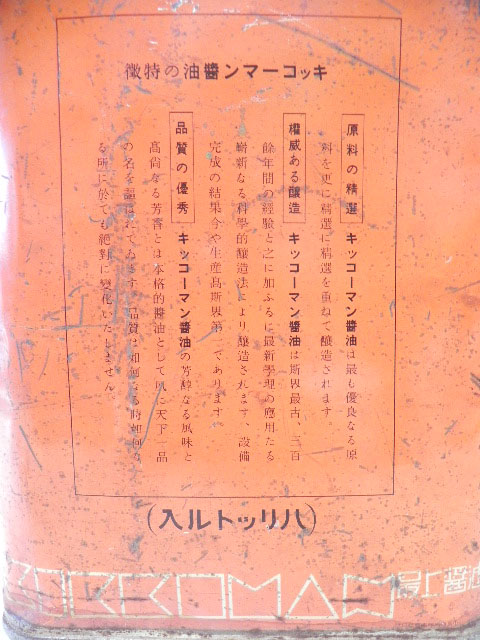 キッコーマン醬油の特徴
原料の精選 キッコーマン醬油は最も優良なる原
料を更に精選に精選を重ねて醸造されます。
權威ある釀造 キッコーマン醬油は斯界最古、三百
餘年間の經驗と之に加ふるに最新學理の應用たる
嶄新なる科學的釀造法により釀造されます、設備
完成の結果今や生産高斯界第一であります。
品質の優秀 キッコーマン醬油の芳醇なる風味と
高尚なる芳香とは本格的醬油として以に天下一品
の名を謳はれてゐます。品質は如何なる時如何な
る所に於ても絕對に變化いたしません。
(八リットル入)